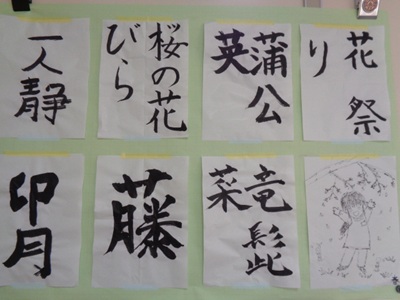 花祭
り
蒲公
英
桜の花
びら
一人静
竜髭
菜
藤
卯月